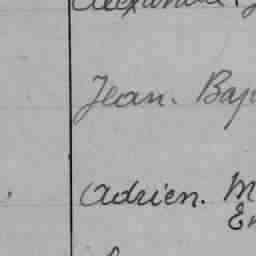 Jean. Bap
Adrien. M
En